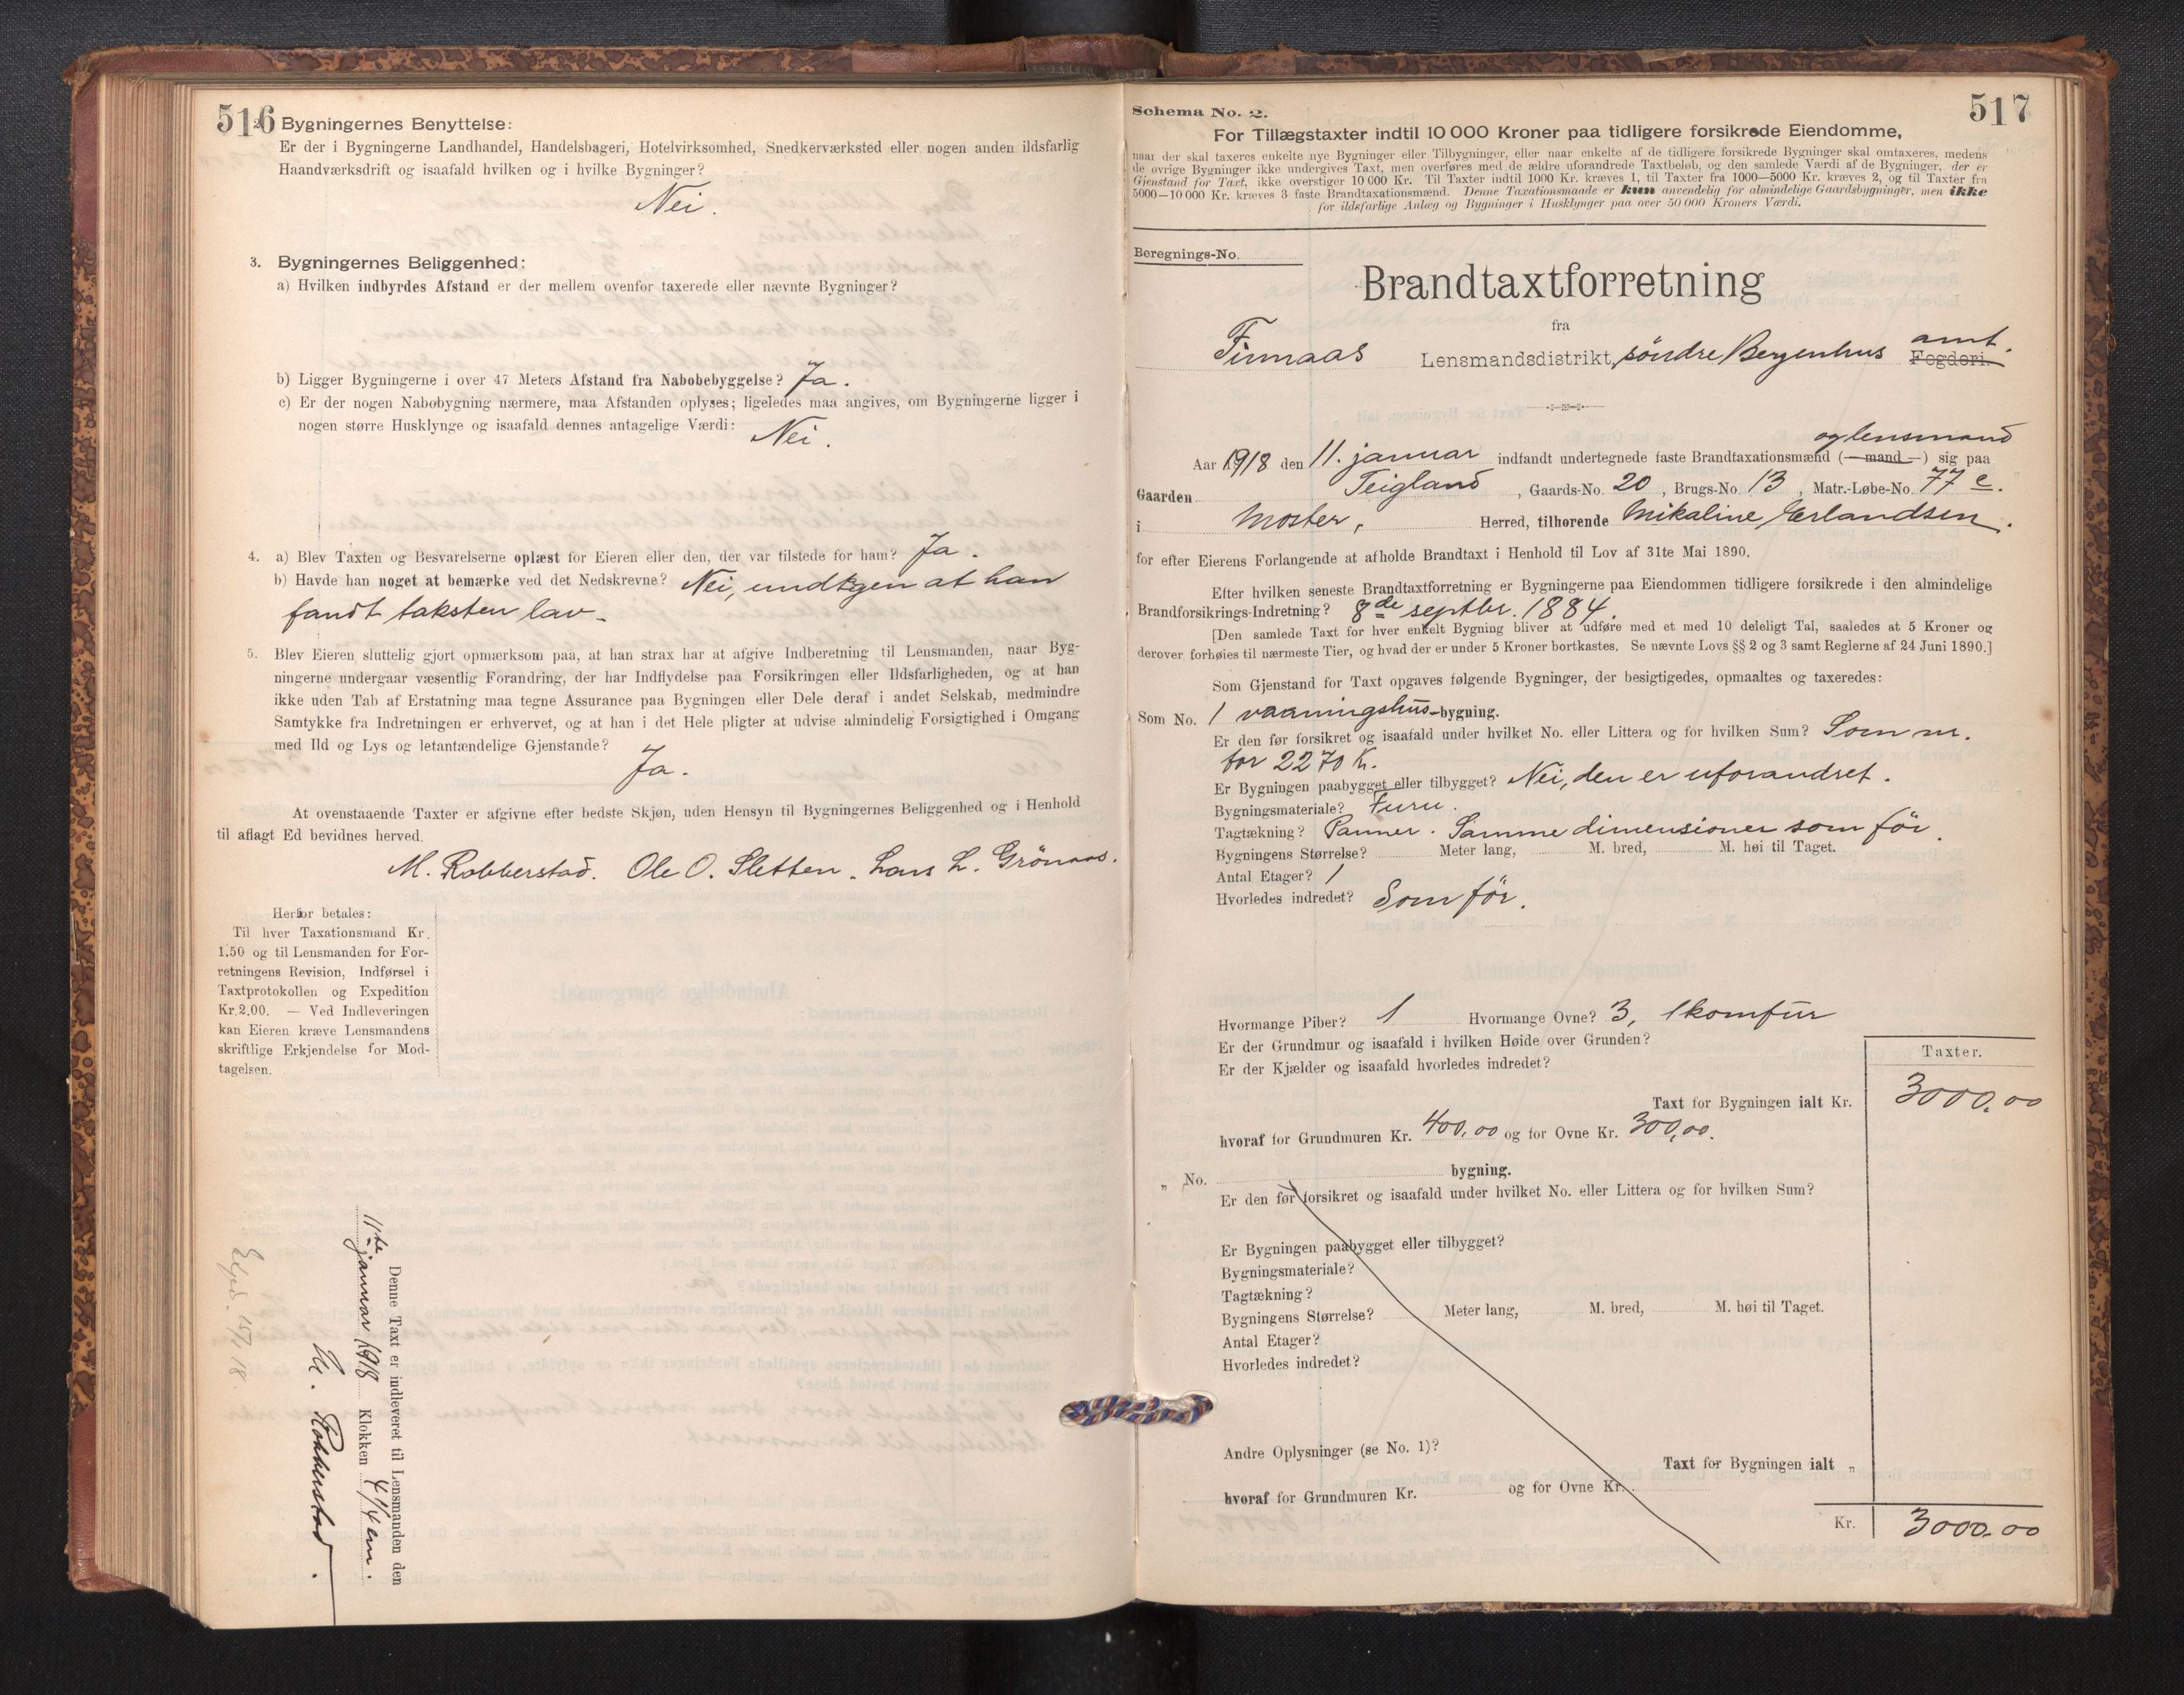 516
2. Bygningernes Benyttelse:
Er der i Bygningerne Landhandel, Handelsbageri, Hotelvirksomhed, Snedkerværksted eller nogen anden ildsfarlig
Haandværksdrift og isaafald hvilken og i hvilke Bygninger?
Nei.
3. Bygningernes Beliggenhed:
a) Hvilken indbyrdes Afstand er der mellem ovenfor taxerede eller nævnte Bygninger?
b) Ligger Bygningerne i over 47 Meters Afstand fra Nabobebyggelse? Ja.
c) Er der nogen Nabobygning nærmere, maa Afstanden oplyses; ligeledes maa angives, om Bygningerne ligger i
nogen større Husklynge og isaafald dennes antagelige Værdi: Nei.
4. a) Blev Taxten og Besvarelserne oplæst for Eieren eller den, der var tilstede for ham? Ja.
b) Havde han noget at bemærke ved det Nedskrevne? Nei, undtgen at han
fandt taksten lav.
5. Blev Eieren sluttelig gjort opmærksom paa, at han strax har at afgive Indberetning til Lensmanden, naar Byg-
ningerne undergaar væsentlig Forandring, der har Indflydelse paa Forsikringen eller Ildsfarligheden, og at han
ikke uden Tab af Erstatning maa tegne Assurance paa Bygningen eller Dele deraf i andet Selskab, medmindre
Samtykke fra Indretningen er erhvervet, og at han i det Hele pligter at udvise almindelig Forsigtighed i Omgang
med Ild og Lys og letantændelige Gjenstande?
Ja.
At ovenstaaende Taxter er afgivne efter bedste Skjøn, uden Hensyn til Bygningernes Beliggenhed og i Henhold
til aflagt Ed bevidnes herved.
M. Robberstad. Ole O. Sletten. Lars L. Grönaas.
Herfor betales:
Til hver Taxationsmand Kr.
1.50 og til Lensmanden for For-
retningens Revision, Indførsel i
Taxtprotokollen og Expedition
Kr. 2.00. — Ved Indleveringen
kan Eieren kræve Lensmandens
skriftlige Erkjendelse for Mod-
tagelsen.
Denne Taxt er indleveret til Lensmanden den
11te januar 1918 Klokken 4 1/4 em.
M. Robberstad.
Exped. 15/1 18.
517
Schema No. 2.
For Tillægstaxter indtil 10 000 Kroner paa tidligere forsikrede Eiendomme,
naar der skal taxeres enkelte nye Bygninger eller Tilbygninger, eller naar enkelte af de tidligere forsikrede Bygninger skal omtaxeres, medens
de øvrige Bygninger ikke undergives Taxt, men overføres med de ældre uforandrede Taxtbeløb, og den samlede Værdi af de Bygninger, der er
Gjenstand for Taxt, ikke overstiger 10 000 Kr. Til Taxter indtil 1000 Kr. kræves 1, til Taxter fra 1000—5000 Kr. kræves 2, og til Taxter fra
5000—10 000 Kr. kræves 3 faste Brandtaxationsmænd. Denne Taxationsmaade er kun anvendelig for almindelige Gaardsbygninger, men ikke
for ildsfarlige Anlæg og Bygninger i Husklynger paa over 50 000 Kroners Værdi.
Beregnings-No.
Brandtaxtforretning
fra
Finnaas Lensmandsdistrikt, söndre Bergenhus amt. Fogderi.
og lensmand
Aar 1918 den 11. januar indfandt undertegnede faste Brandtaxationsmænd (—mand—) sig paa
Gaarden Teigland, Gaards-No. 20, Brugs-No. 13, Matr.-Løbe-No. 77 c.
i Moster, Herred, tilhørende Mikaline Erlandsen.
for efter Eierens Forlangende at afholde Brandtaxt i Henhold til Lov af 31te Mai 1890.
Efter hvilken seneste Brandtaxtforretning er Bygningerne paa Eiendommen tidligere forsikrede i den almindelige
Brandforsikrings-Indretning? 8de septbr. 1884.
[Den samlede Taxt for hver enkelt Bygning bliver at udføre med et med 10 deleligt Tal, saaledes at 5 Kroner og
derover forhøies til nærmeste Tier, og hvad der er under 5 Kroner bortkastes. Se nævnte Lovs §§ 2 og 3 samt Reglerne af 24 Juni 1890.]
Som Gjenstand for Taxt opgaves følgende Bygninger, der besigtigedes, opmaaltes og taxeredes:
Som No. 1 vaaningshus-bygning.
Er den før forsikret og isaafald under hvilket No. eller Littera og for hvilken Sum? Som nr.
for 2270 K.
Er Bygningen paabygget eller tilbygget? Nei, den er uforandret.
Bygningsmateriale? Furu.
Tagtækning? Panner. Samme dimensioner som för.
Bygningens Størrelse? Meter lang, M. bred, M. høi til Taget.
Antal Etager? 1
Hvorledes indredet? Som för.
Hvormange Piber? 1 Hvormange Ovne? 3, 1 komfur
Er der Grundmur og isaafald i hvilken Høide over Grunden?
Er der Kjælder og isaafald hvorledes indredet?
Taxter.
Taxt for Bygningen ialt Kr. 3000.00
hvoraf for Grundmuren Kr. 400,00 og for Ovne Kr. 300,00.
„ No. bygning.
Er den før forsikret og isaafald under hvilket No. eller Littera og for hvilken Sum?
Er Bygningen paabygget eller tilbygget?
Bygningsmateriale?
Tagtækning?
Bygningens Størrelse? Meter lang, M. bred, M. høi til Taget.
Antal Etager?
Hvorledes indredet?
Andre Oplysninger (se No. 1)?
Taxt for Bygningen ialt „
hvoraf for Grundmuren Kr. og for Ovne Kr.
Kr. 3000.00